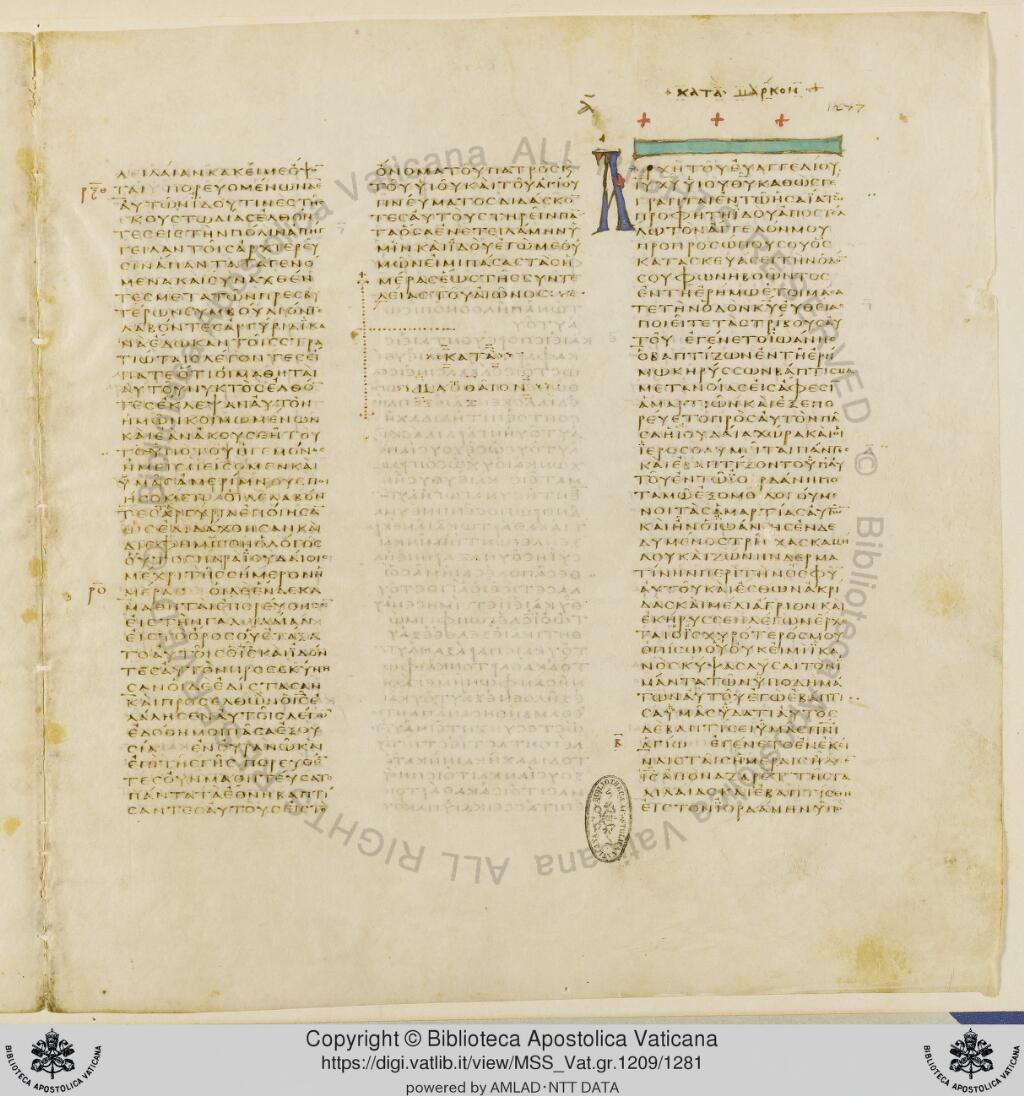 ΚΑΤΑ ΜΑΡΚΟΝ
1277
ΛΕΙΛΑΙΑΝΚΑΚΕΙΜΕΟΨΟ̅
ΤΑΙ ΠΟΡΕΥΟΜΕΝΩΝΔΕ
ΑΥΤΩΝΙΔΟΥΤΙΝΕϹΤΗϹ
ΚΟΥϹΤΩΔΙΑϹΕΛΘΟΝ
ΤΕϹΕΙϹΤΗΝΠΟΛΙΝΑΠΗΓ
ΓΕΙΛΑΝΤΟΙϹΑΡΧΙΕΡΕΥ
ϹΙΝΑΠΑΝΤΑΤΑΓΕΝΟ
ΜΕΝΑΚΑΙϹΥΝΑΧΘΕΝ
ΤΕϹΜΕΤΑΤΩΝΠΡΕϹΒΥ
ΤΕΡΩΝϹΥΜΒΟΥΛΙΟΝΤΕ
ΛΑΒΟΝΤΕϹΑΡΓΥΡΙΑΙΚΑ
ΝΑΕΔΩΚΑΝΤΟΙϹϹΤΡΑ
ΤΙΩΤΑΙϹΛΕΓΟΝΤΕϹΕΙ
ΠΑΤΕΟΤΙΟΙΜΑΘΗΤΑΙ
ΑΥΤΟΥΝΥΚΤΟϹΕΛΘΟ̅
ΤΕϹΕΚΛΕΨΑΝΑΥΤΟΝ
ΗΜΩΝΚΟΙΜΩΜΕΝΩΝ
ΚΑΙΕΑΝΑΚΟΥϹΘΗΤΟΥ
ΤΟΥΠΟΤΟΥΗΓΕΜΟΝΟϹ
ΗΜΕΙϹΠΕΙϹΟΜΕΝΚΑΙ
ΫΜΑϹΑΜΕΡΙΜΝΟΥϹΠΟΙ
ΗϹΟΜΕΝ ΟΙΔΕΛΑΒΟΝ
ΤΕϹΑΡΓΥΡΙΑΕΠΟΙΗϹΑ̅
ΩϹΕΔΙΔΑΧΘΗϹΑΝΚΑΙ
ΔΙΕΦΗΜΙϹΘΗΟΛΟΓΟϹ
ΟΥΤΟϹΠΑΡΑΪΟΥΔΑΙΟΙϹ
ΜΕΧΡΙΤΗϹϹΗΜΕΡΟΝΗ
ΜΕΡΑϹ ΟΙΔΕΕΝΔΕΚΑ
ΜΑΘΗΤΑΙΕΠΟΡΕΥΘΗϹΑ̅
ΕΙϹΤΗΝΓΑΛΕΙΛΑΙΑΝ
ΕΙϹΤΟΟΡΟϹΟΥΕΤΑΞΑ
ΤΟΑΥΤΟΙϹΟΙϹΚΑΙΪΔΟΝ
ΤΕϹΑΥΤΟΝΠΡΟϹΕΚΥΝΗ
ϹΑΝΟΙΔΕΕΔΙϹΤΑϹΑΝ
ΚΑΙΠΡΟϹΕΛΘΩΝΟΙϹΕ
ΛΑΛΗϹΕΝΑΥΤΟΙϹΛΕΓΩ̅
ΕΔΟΘΗΜΟΙΠΑϹΑΕΞΟΥ
ϹΙΑ ΕΝΟΥΡΑΝΩΚΑΙ
ΕΠΙΤΗϹΓΗϹ ΠΟΡΕΥΘΕ̅
ΤΕϹΟΥΝΜΑΘΗΤΕΥϹΑΤΕ
ΠΑΝΤΑΤΑΕΘΝΗΒΑΠΤΙ
ϹΑΝΤΕϹΑΥΤΟΥϹΕΙϹΤΟ
ΟΝΟΜΑΤΟΥΠΑΤΡΟϹΚΑΙ
ΤΟΥΥΙΟΥΚΑΙΤΟΥΑΓΙΟΥ
ΠΝΕΥΜΑΤΟϹΔΙΔΑϹΚΟ̅
ΤΕϹΑΥΤΟΥϹΤΗΡΕΙΝΠΑ̅
ΤΑΟϹΑΕΝΕΤΕΙΛΑΜΗΝΫ
ΜΙΝΚΑΙΪΔΟΥΕΓΩΜΕΘΥ
ΜΩΝΕΙΜΙΠΑϹΑϹΤΑϹΗ
ΜΕΡΑϹΕΩϹΤΗϹϹΥΝΤΕ
ΛΕΙΑϹΤΟΥΑΙΩΝΟϹ
ΚΑΤΑ
ΜΑΘΘΑΙΟΝ
ΑΡΧΗΤΟΥΕΥΑΓΓΕΛΙΟΥ
ΙΥ ΧΥ ΥΙΟΥΘΥΚΑΘΩϹΓΕ
ΓΡΑΠΤΑΙΕΝΤΩΗϹΑΪΑΤΩ
ΠΡΟΦΗΤΗΙΔΟΥΑΠΟϹΤΕΛ
ΛΩΤΟΝΑΓΓΕΛΟΝΜΟΥ
ΠΡΟΠΡΟϹΩΠΟΥϹΟΥΟϹ
ΚΑΤΑϹΚΕΥΑϹΕΙΤΗΝΟΔΟ̅
ϹΟΥΦΩΝΗΒΟΩΝΤΟϹ
ΕΝΤΗΕΡΗΜΩΕΤΟΙΜΑϹΑ
ΤΕΤΗΝΟΔΟΝΚΥΕΥΘΕΙΑϹ
ΠΟΙΕΙΤΕΤΑϹΤΡΙΒΟΥϹΑΥ
ΤΟΥ ΕΓΕΝΕΤΟΪΩΑΝΗϹ
ΟΒΑΠΤΙΖΩΝΕΝΤΗΕΡΗ
ΜΩΚΗΡΥϹϹΩΝΒΑΠΤΙϹΜΑ
ΜΕΤΑΝΟΙΑϹΕΙϹΑΦΕϹΙ̅
ΑΜΑΡΤΙΩΝΚΑΙΕΞΕΠΟ
ΡΕΥΕΤΟΠΡΟϹΑΥΤΟΝΠΑ
ϹΑΗΙΟΥΔΑΙΑΧΩΡΑΚΑΙΟΙ
ΪΕΡΟϹΟΛΥΜΕΙΤΑΙΠΑΝΤΕϹ
ΚΑΙΕΒΑΠΤΙΖΟΝΤΟΥΠΑΥ
ΤΟΥΕΝΤΩΪΟΡΔΑΝΗΠΟ
ΤΑΜΩΕΞΟΜΟΛΟΓΟΥΜΕ
ΝΟΙΤΑϹΑΜΑΡΤΙΑϹΑΥΤΩ̅
ΚΑΙΗΝΟΪΩΑΝΗϹΕΝΔΕ
ΔΥΜΕΝΟϹΤΡΙΧΑϹΚΑΜΗ
ΛΟΥΚΑΙΖΩΝΗΝΔΕΡΜΑ
ΤΙΝΗΝΠΕΡΙΤΗΝΟϹΦΥ̅
ΑΥΤΟΥΚΑΙΕϹΘΩΝΑΚΡΙ
ΔΑϹΚΑΙΜΕΛΙΑΓΡΙΟΝΚΑΙ
ΕΚΗΡΥϹϹΕΝΛΕΓΩΝΕΡΧΕ
ΤΑΙΟΪϹΧΥΡΟΤΕΡΟϹΜΟΥ
ΟΠΙϹΩΟΥΟΥΚΕΙΜΙΪΚΑ
ΝΟϹΚΥΨΑϹΛΥϹΑΙΤΟΝΙ
ΜΑΝΤΑΤΩΝΫΠΟΔΗΜΑ
ΤΩΝΑΥΤΟΥΕΓΩΕΒΑΠΤΙ
ϹΑΫΜΑϹΫΔΑΤΙΑΥΤΟϹ
ΔΕΒΑΠΤΙϹΕΙΫΜΑϹΠΝΙ
ΑΓΙΩ ΕΓΕΝΕΤΟΕΝΕΚΕΙ
ΝΑΙϹΤΑΙϹΗΜΕΡΑΙϹΗΛΘΕ̅
ΙϹΑΠΟΝΑΖΑΡΕΤΤΗϹΓΑ
ΛΙΛΑΙΑϹΚΑΙΕΒΑΠΤΙϹΘΗ
ΕΙϹΤΟΝΙΟΡΔΑΝΗΝΥΠΟ
Copyright © Biblioteca Apostolica Vaticana
https://digi.vatlib.it/view/MSS_Vat.gr.1209/1281
powered by AMLAD·NTT DATA
BIBLIOTECA APOSTOLICA VATICANA
BIBLIOTECA APOSTOLICA VATICANA